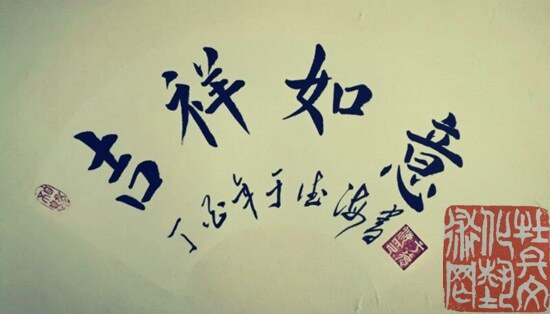 吉祥如意
丁酉年于德海書